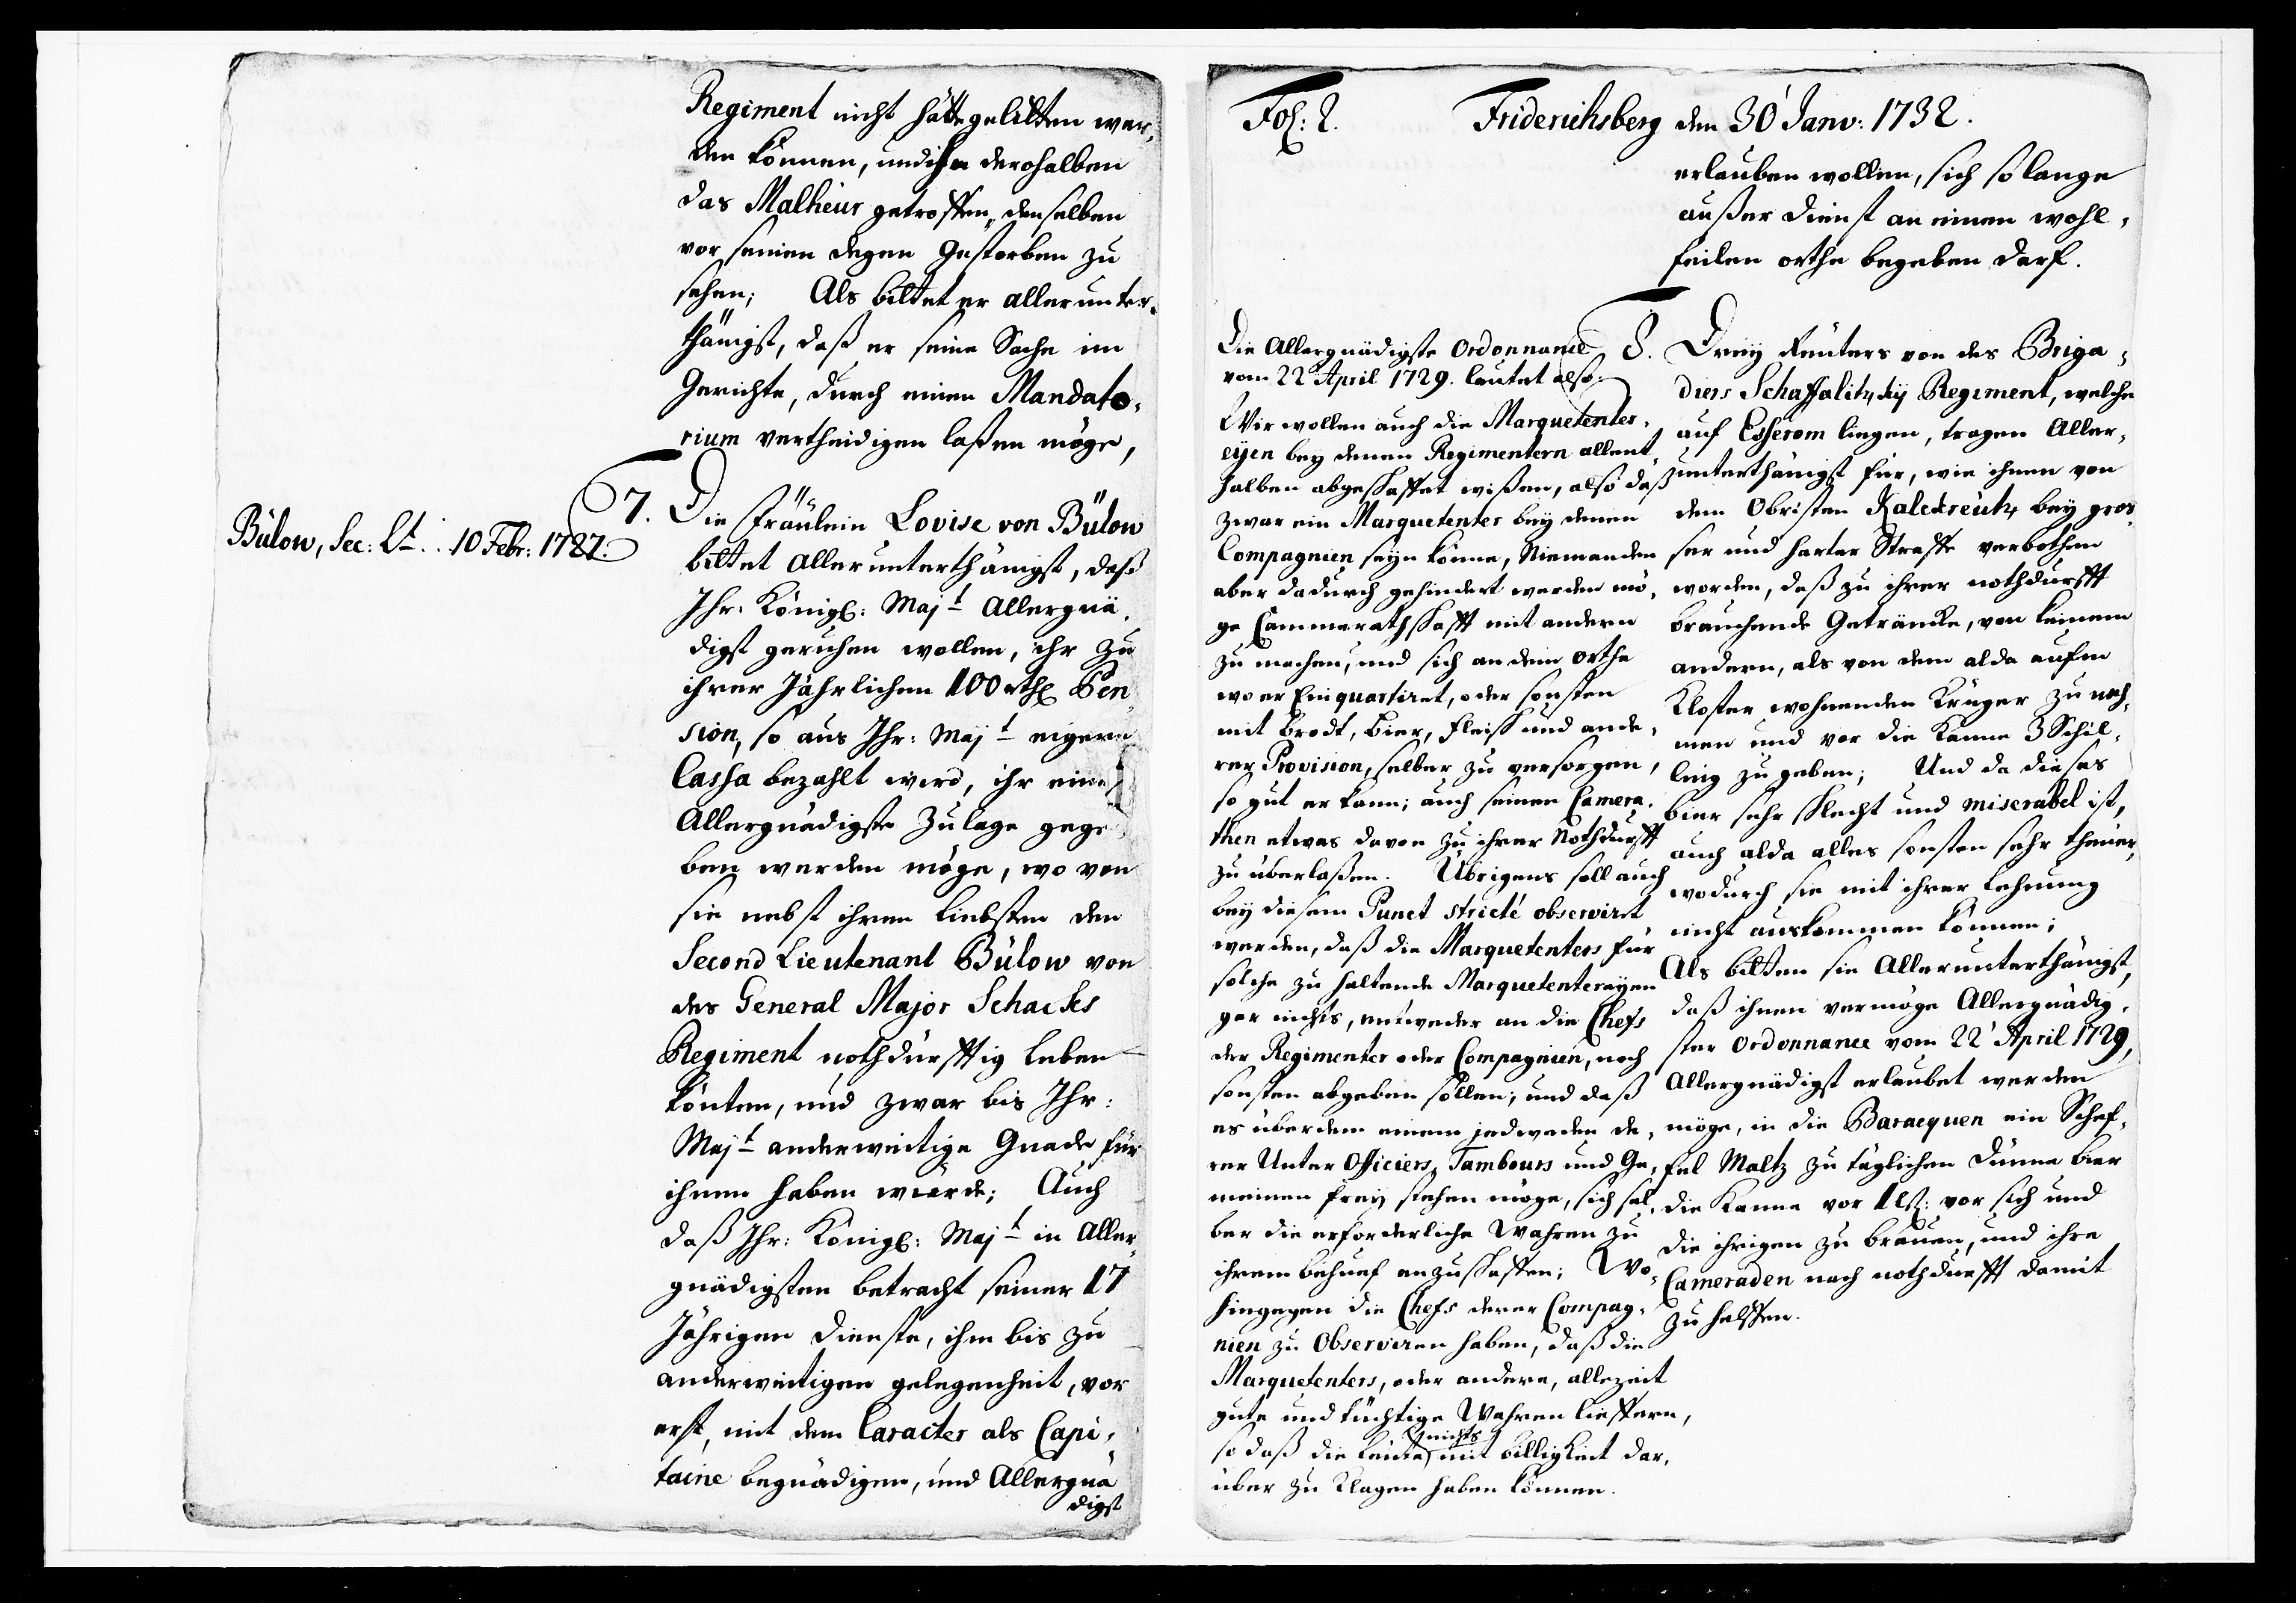 Regiment nicht hätte gelitten wer,
den können, und ihn derohalben
das Malheur getroffen, denselben
vor seinen degen gestorben zu
sehen; Als bittet er allerunter,
thänigst, daß er seine Sache im
Gerichte, durch einen Mandato,
rium vertheidigen laßen möge,
7. Die Fräulein Lovise von Bülow
Bülow, Sec: Lt. 10 Febr: 1727.
bittet allerunterthänigst, daß
Ihr: Königl: Majt Allergnä,
digst geruhen wollen, ihr zu
ihrer Jährlichen 100 rthl Pen,
sion, so aus Ihr: Majt eigene
Cassa bezahlt wird, ihr eine
Allergnädigste Zulage gege
ben werden möge, wo von
sie nebst ihren liebsten den
Second Lieutenant Bülow von
des General Major Schacks
Regiment nothdürfftig leben
könten, und zwar bis Ihr:
Majt anderweitige Gnade für
ihnen haben würde; Auch
daß Ihr: Königl: Majt in Aller,
gnädigsten betracht seiner 17
Jährigen dienste, ihm bis zu
anderweitigen gelegenheit, vor
erst, mit dem Caracter als Capi,
taine begnädigen, und Allergnä
digst
Fol: 2. Friderichsberg den 30 Janv: 1732.
erlauben wollen, sich so lange
außer dienst an einen wohl,
feilen orthe begeben darf.
Die Allergnädigste Ordonnance
vom 22 April 1729. lautet also:
Wir wollen auch die Marquetenter,
eyen bey denen Regimentern allent,
halben abgeschaffet wißen, also daß
zwar ein Marquetenter bey denen
Compagnien seyn könne, Niemanden
aber dadurch gehindert werden mö,
ge Cammerathschafft mit andern
zu machen, und sich an dem orthe
wo er Einquartiret, oder sonsten
mit Brodt, Bier, Fleisch und ande,
rer Provision, selber zu versorgen,
so gut er kann; auch seinen Camera,
then etwas davon zu ihrer Nothdurfft
zu überlaßen. Übrigens soll auch
bey diesem Punct stricté observiret
werden, daß die Marquetenters für
solche zu haltende Marquetentereyen
gar nichts, entweder an die Chefs
der Regimenter oder Compagnien, noch
sonsten abgeben sollen; und daß
es überdem einem jedweden de,
rer Unter Officiers, Tambours und Ge,
meinen frey stehen möge, sich sel,
ber die erforderliche Wahren zu
ihrem behuef anzuschaffen; Wo,
hingegen die Chefs derer Compag,
nien zu Observiren haben, daß die
Marquetenters, oder andere, allezeit
gute und tüchtige Wahren lieffern,
so daß die Leute nichts mit billigkeit dar,
über zu Klagen haben können.
8. Drey Reuters von des Briga,
diers Schaffalitzkij Regiment, welche
auf Esserom liegen, tragen Aller,
unterthänigst für, wie ihnen von
dem Obristen Kalckreutz bey gros,
ser und harter Straffe verbothen
worden, daß zu ihrer nothdurfft
brauchende Getränke, von keinem
andern, als von dem alda aufm
Kloster wohnenden Krüger zu neh,
men und vor die Kanne 3 Schil,
ling zu geben; Und da dieses
bier sehr schlecht und miserabel ist,
auch alda alles sonsten sehr theuer,
wodurch sie mit ihrer Lehnung
nicht auskommen können;
Als bitten sie Allerunterthänigst,
daß ihnen vermöge Allergnädig,
ster Ordonnance vom 22 April 1729,
Allergnädigst erlaubet werden
möge, in die Baracquen ein Schef,
fel Maltz zu täglichen dünne bier
die Kanne vor 1 lß: vor sich und
die ihrigen zu brauen, und ihre
Cameraden nach nothdurfft damit
zu helffen.